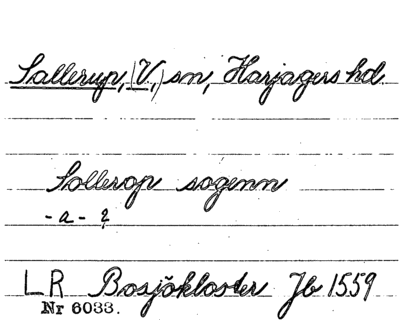 Sallerup, (V,) sn, Harjagers hd.
Sollerop sogenn
- a - ?
LR Bosjökloster Jb 1559
Nr 6033.